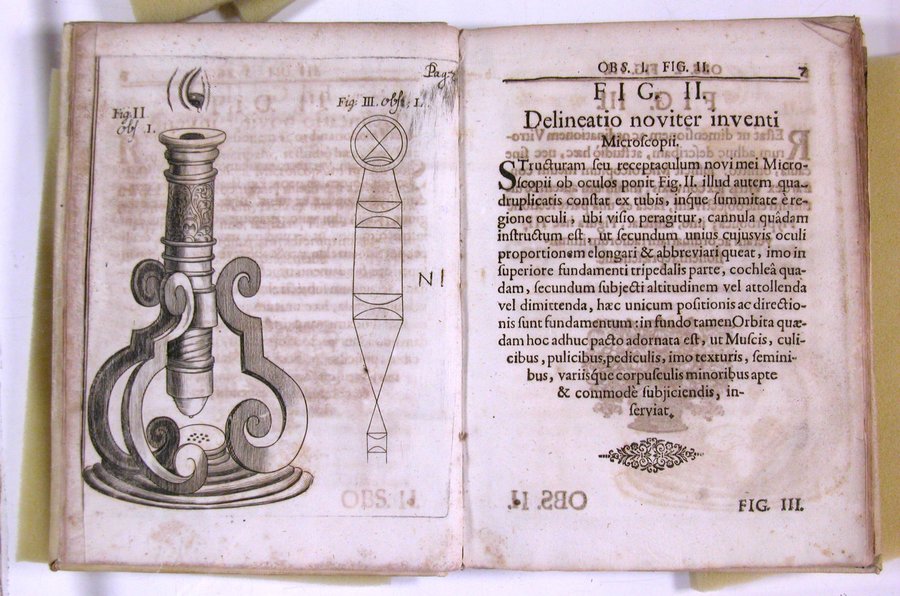 Pag:
Fig: II
Obs I.
Fig: III. Obs: I.
N!
OBS. I. FIG. II. 7
FIG. II.
Delineatio noviter inventi
Microscopii.
STructuram seu receptaculum novi mei Micro-
scopii ob oculos ponit Fig. II. illud autem qua-
druplicatis constat ex tubis, inque summitate è re-
gione oculi, ubi visio peragitur, cannula quâdam
instructum est, ut secundum unius cujusvis oculi
proportionem elongari & abbreviari queat, imo in
superiore fundamenti tripedalis parte, cochleâ qua-
dam, secundum subjecti altitudinem vel attollenda
vel dimittenda, hæc unicum positionis ac directio-
nis sunt fundamentum: in fundo tamen Orbita quæ-
dam hoc adhuc pacto adornata est, ut Muscis, culi-
cibus, pulicibus, pediculis, imo texturis, semini-
bus, variisque corpusculis minoribus apte
& commodè subjiciendis, in-
serviat.
FIG. III.